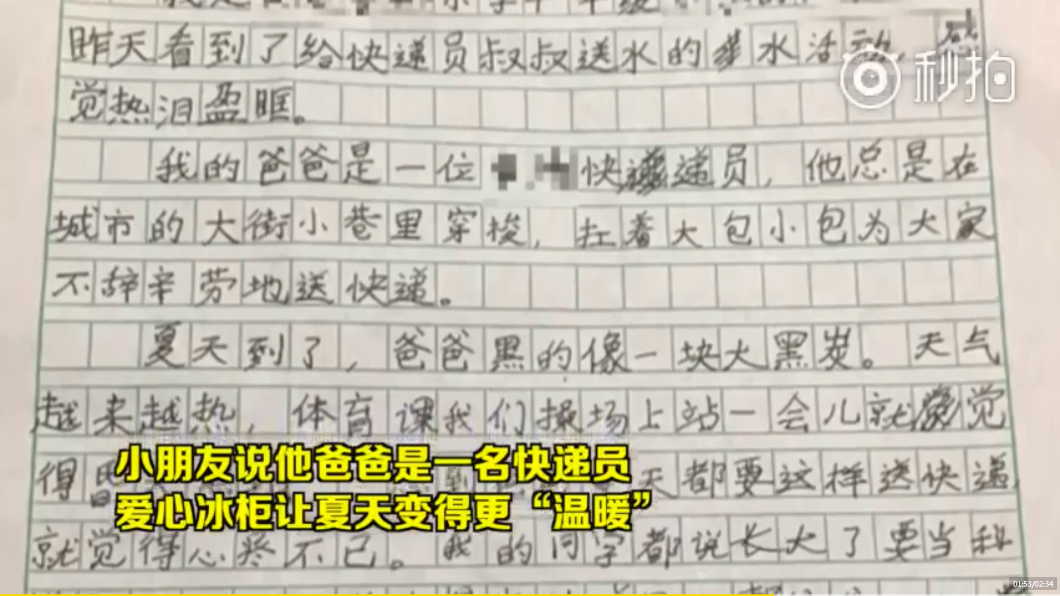 昨天看到了给快递员叔叔送水的 水活动,感
秒拍
觉热泪盈眶。
我的爸爸是一位 快递递员,他总是在
城市的大街小巷里穿梭,扛着大包小包为大家
不辞辛劳地送快递。
夏天到了,爸爸黑的像一块大黑炭。天气
越来越热,体育课我们操场上站一会儿就 觉
小朋友说他爸爸是一名快递员
得 天都要这样送快递
爱心冰柜让夏天变得更“温暖”
就觉得心疼不已。我的同学都说长大了要当科
01:53/02:34